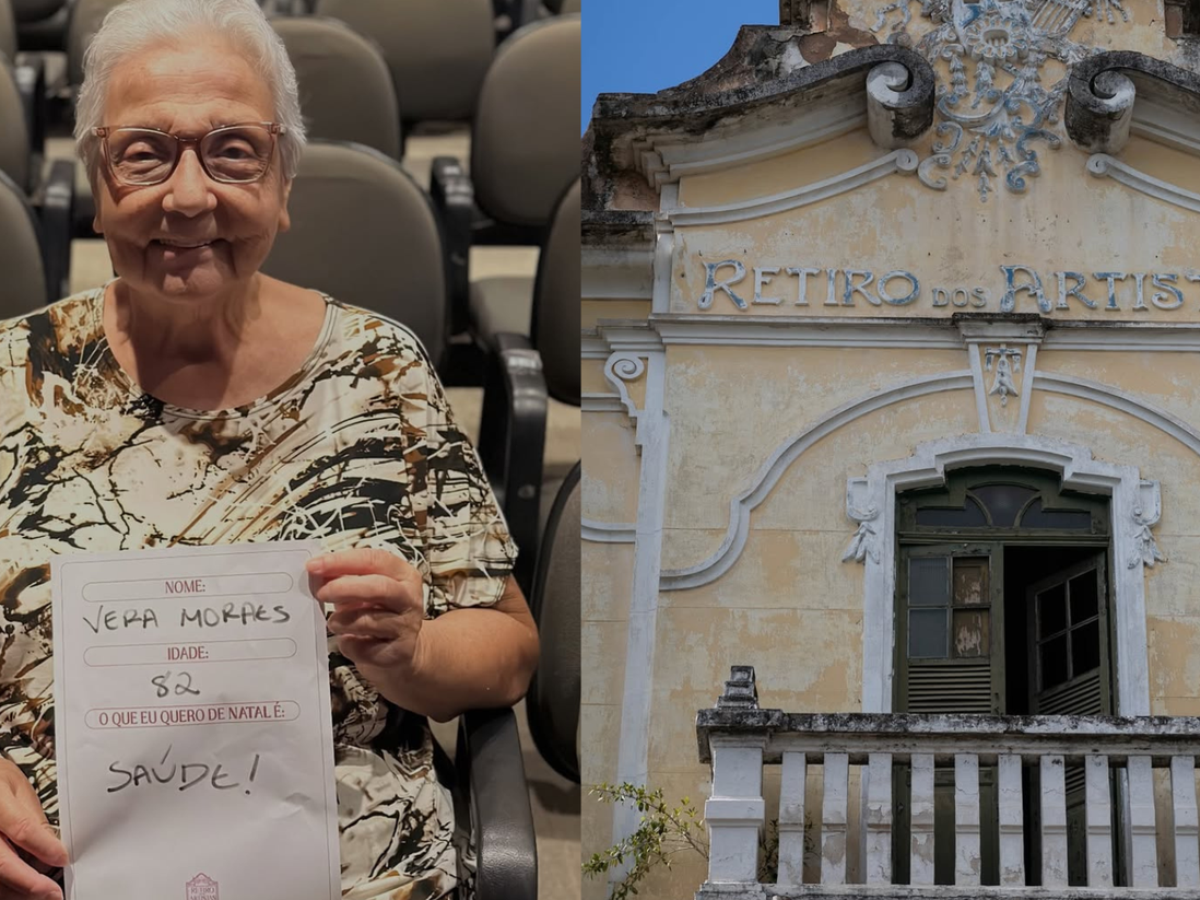 NOME:
VERA MORAES
IDADE:
82
O QUE EU QUERO DE NATAL É:
SAÚDE!
RETIRO
RETIRO DOS ARTIST